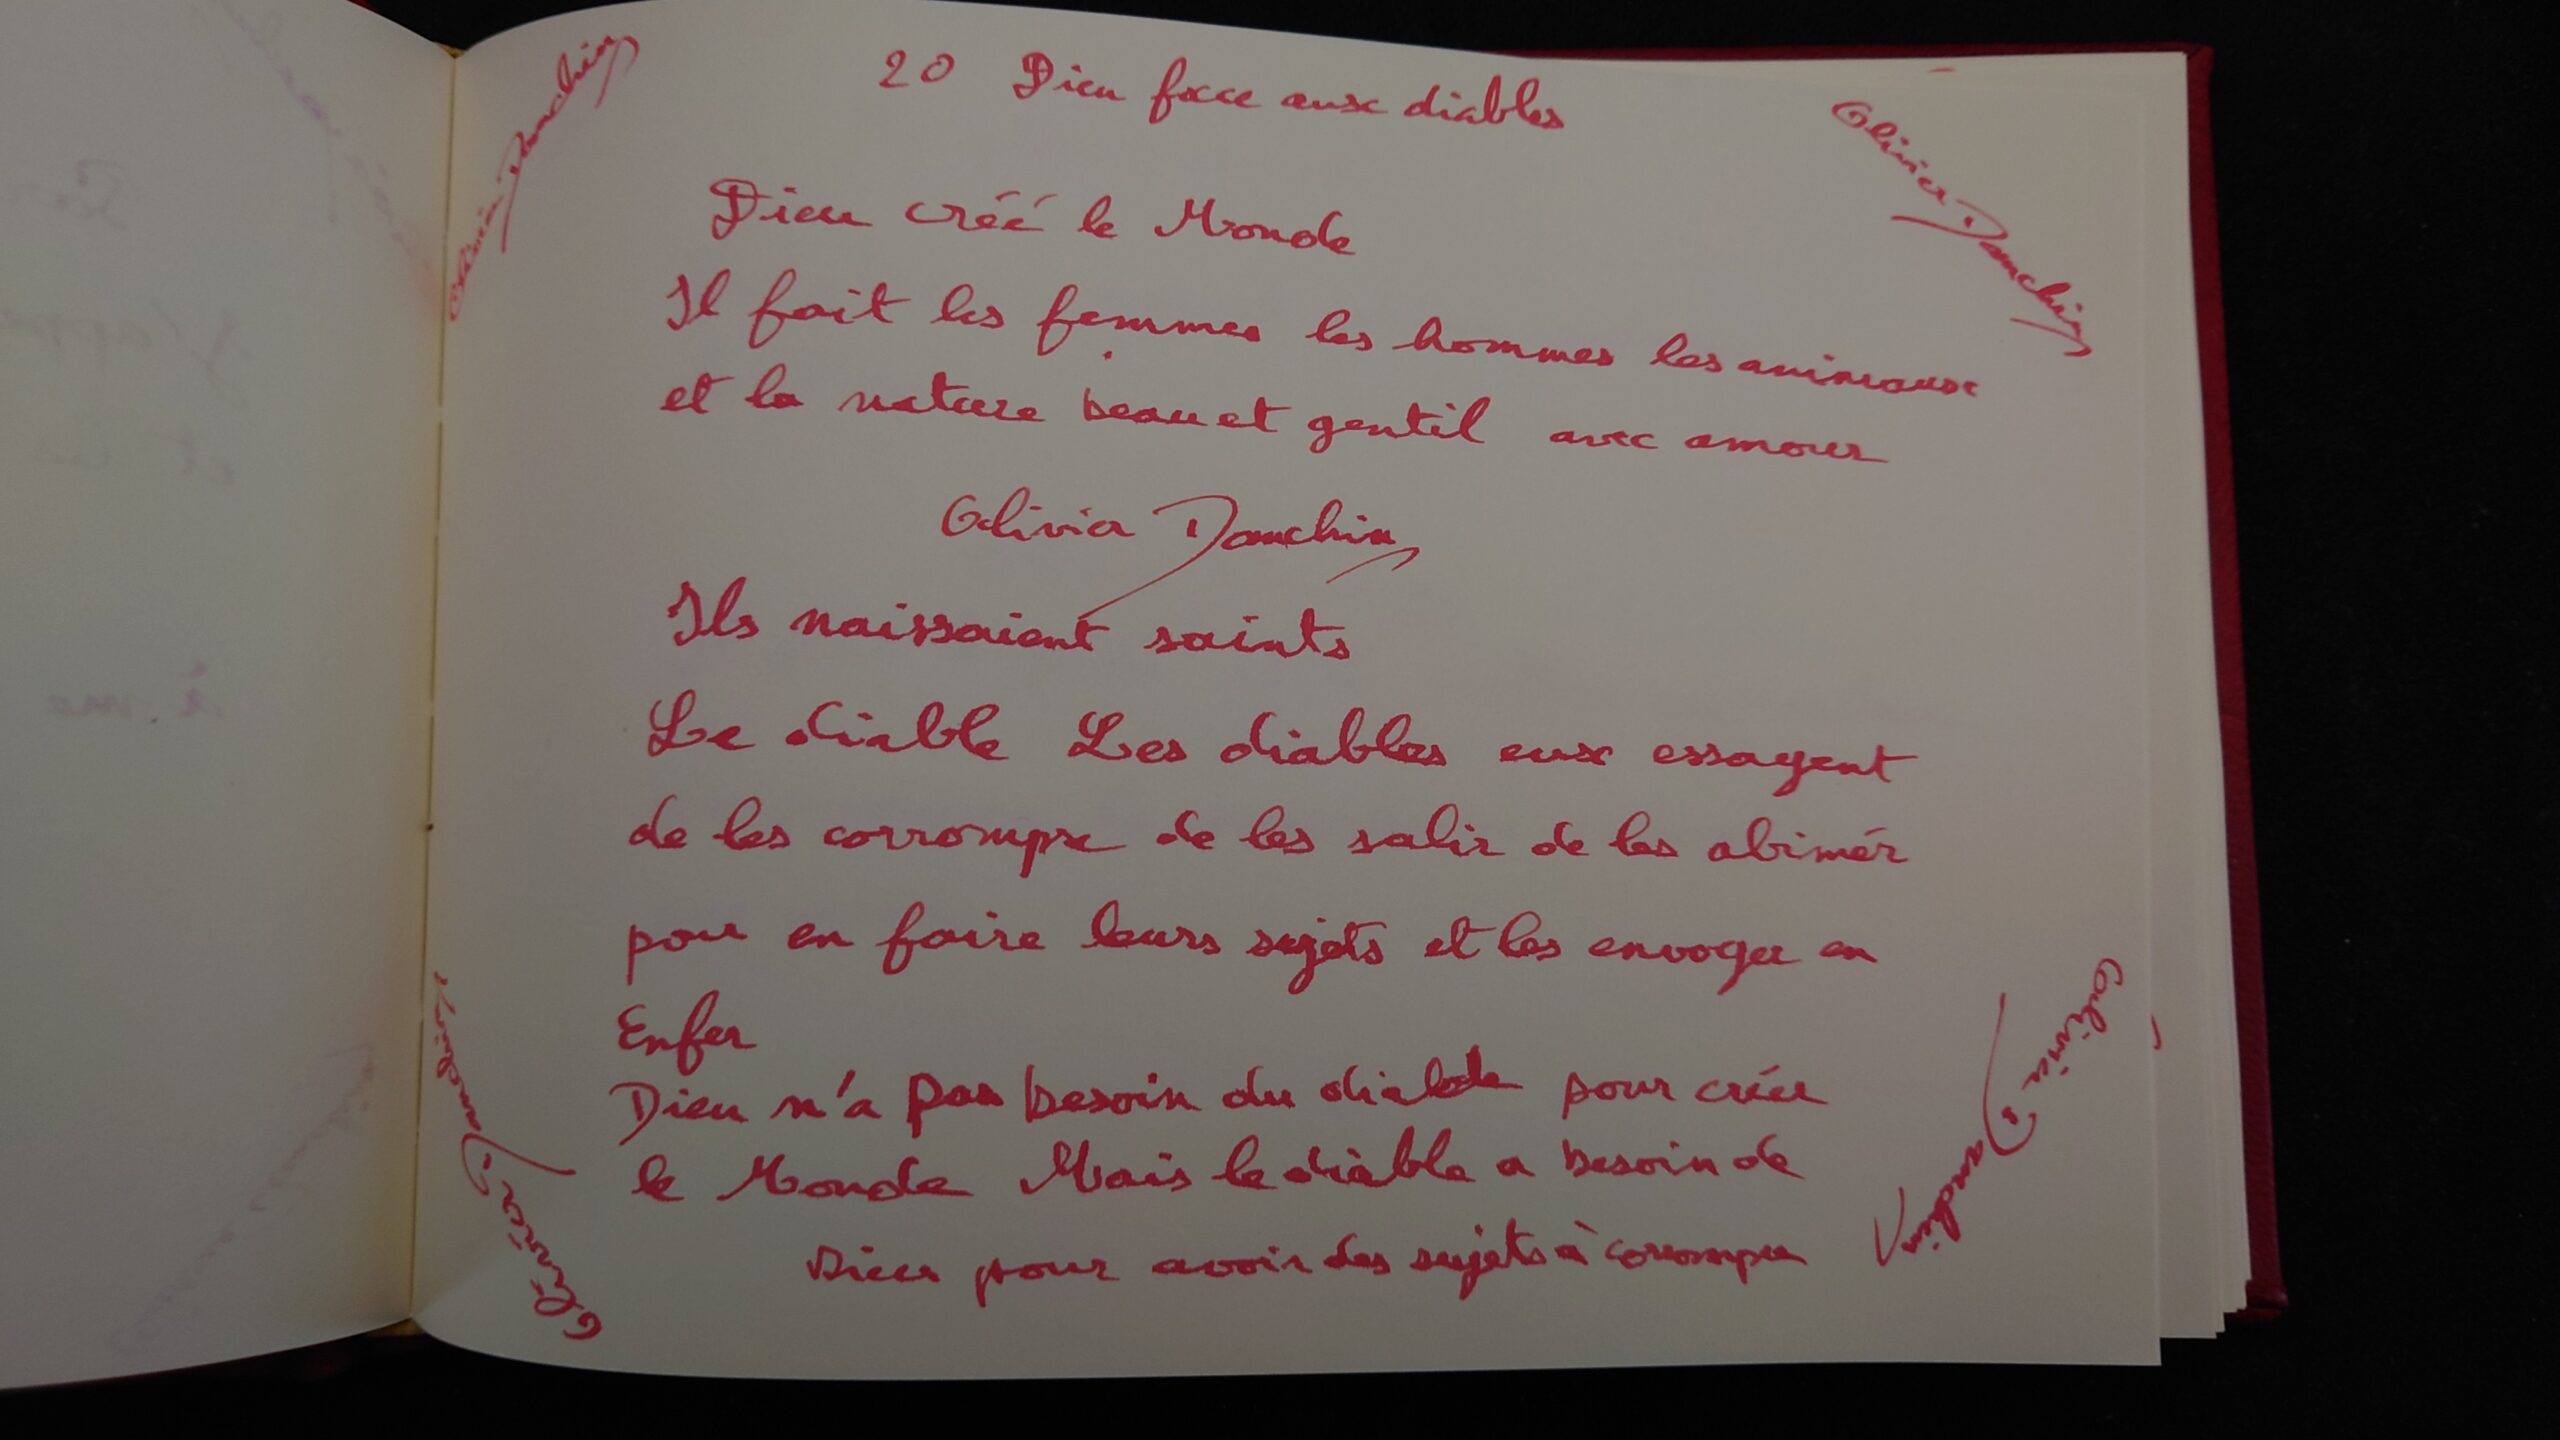 20 Dieu face aux diables
Dieu créé le Monde
Il fait les femmes les hommes les animaux
et la nature beau et gentil avec amour
Olivia Danchin
Ils naissaient saints
Le diable Les diables eux essayent
de les corrompre de les salir de les abimér
pour en faire leurs sujets et les envoyer en
Enfer
Dieu n'a pas besoin du diable pour créer
le Monde Mais le diable a besoin de
Dieu pour avoir des sujets à corrompre
Olivia Danchin
Olivia Danchin
Olivia Danchin
Olivia Danchin